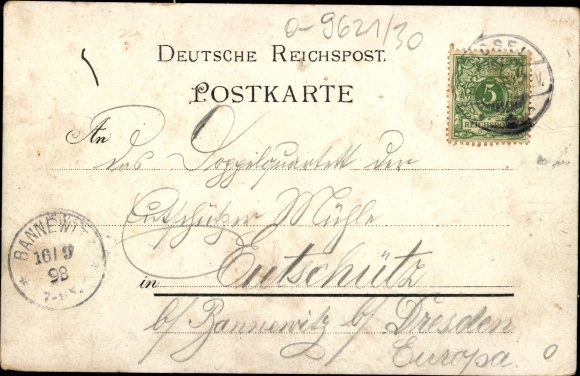 0-9621/30
DEUTSCHE REICHSPOST.
POSTKARTE
5
REICHSPOST
An
das Doppelquartett der
Eutschützer Mühle
BANNEWITZ
16/9
98
in Eutschütz
b/ Bannewitz b/ Dresden
Europa.